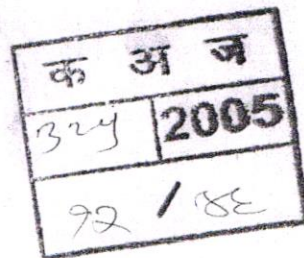 क अ ज
३२५ 2005
१२ / ४६